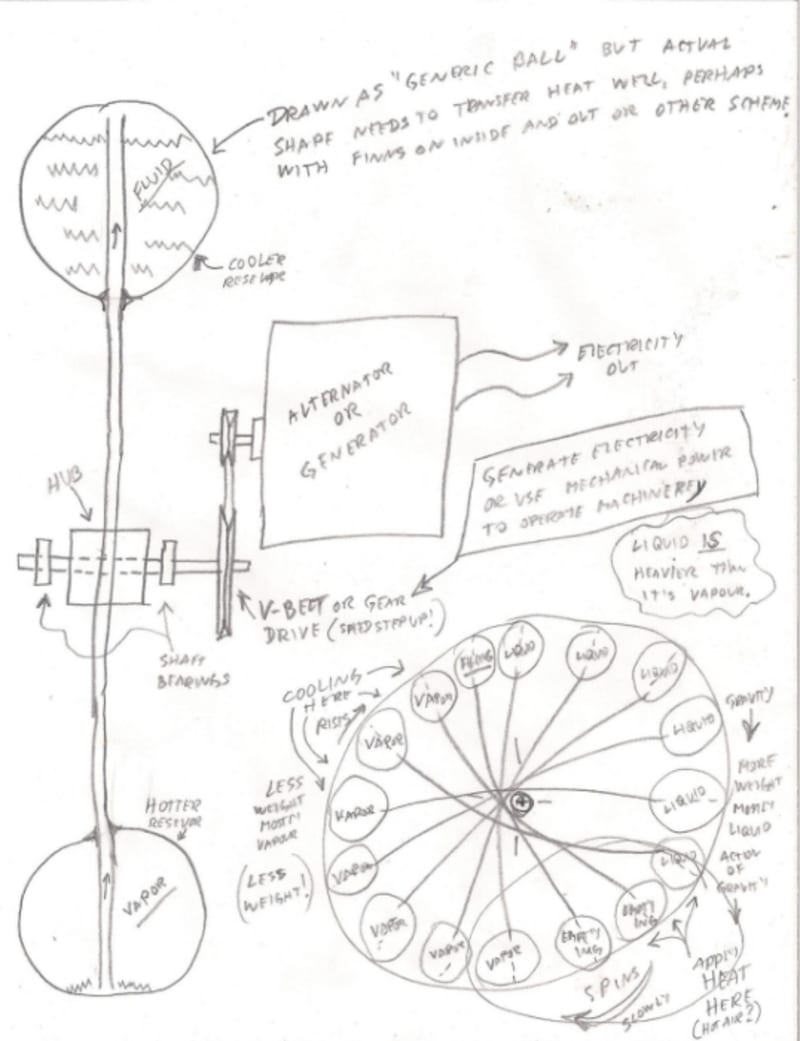 DRAWN AS "GENERIC BALL" BUT ACTUAL
SHAPE NEEDS TO TRANSFER HEAT WELL, PERHAPS
WITH FINNS ON INSIDE AND OUT OR OTHER SCHEME
FLUID
COOLER
RESEVOR
ALTERNATOR
OR
GENERATOR
ELECTRICITY
OUT
GENERATE ELECTRICITY
OR USE MECHANICAL POWER
TO OPERATE MACHINEREY
HUB
LIQUID IS
HEAVIER THAN
IT'S VAPOUR.
V-BELT OR GEAR
DRIVE (SPEED STEP UP!)
SHAFT
BEARINGS
COOLING
HERE
RISES
FILLING
LIQUID
LIQUID
LIQUID
LIQUID
LIQUID
LIQUID
EMPTY
ING
EMPTY
ING
VAPOR
VAPOR
VAPOR
VAPOR
VAPOR
VAPOR
VAPOR
GRAVITY
MORE
WEIGHT
MOSTLY
LIQUID
ACTION
OF
GRAVITY
LESS
WEIGHT
MOSTLY
VAPOUR
(LESS
WEIGHT!)
HOTTER
RESEVOR
VAPOR
SPINS
SLOWLY
APPLY
HEAT
HERE
(HOT AIR?)